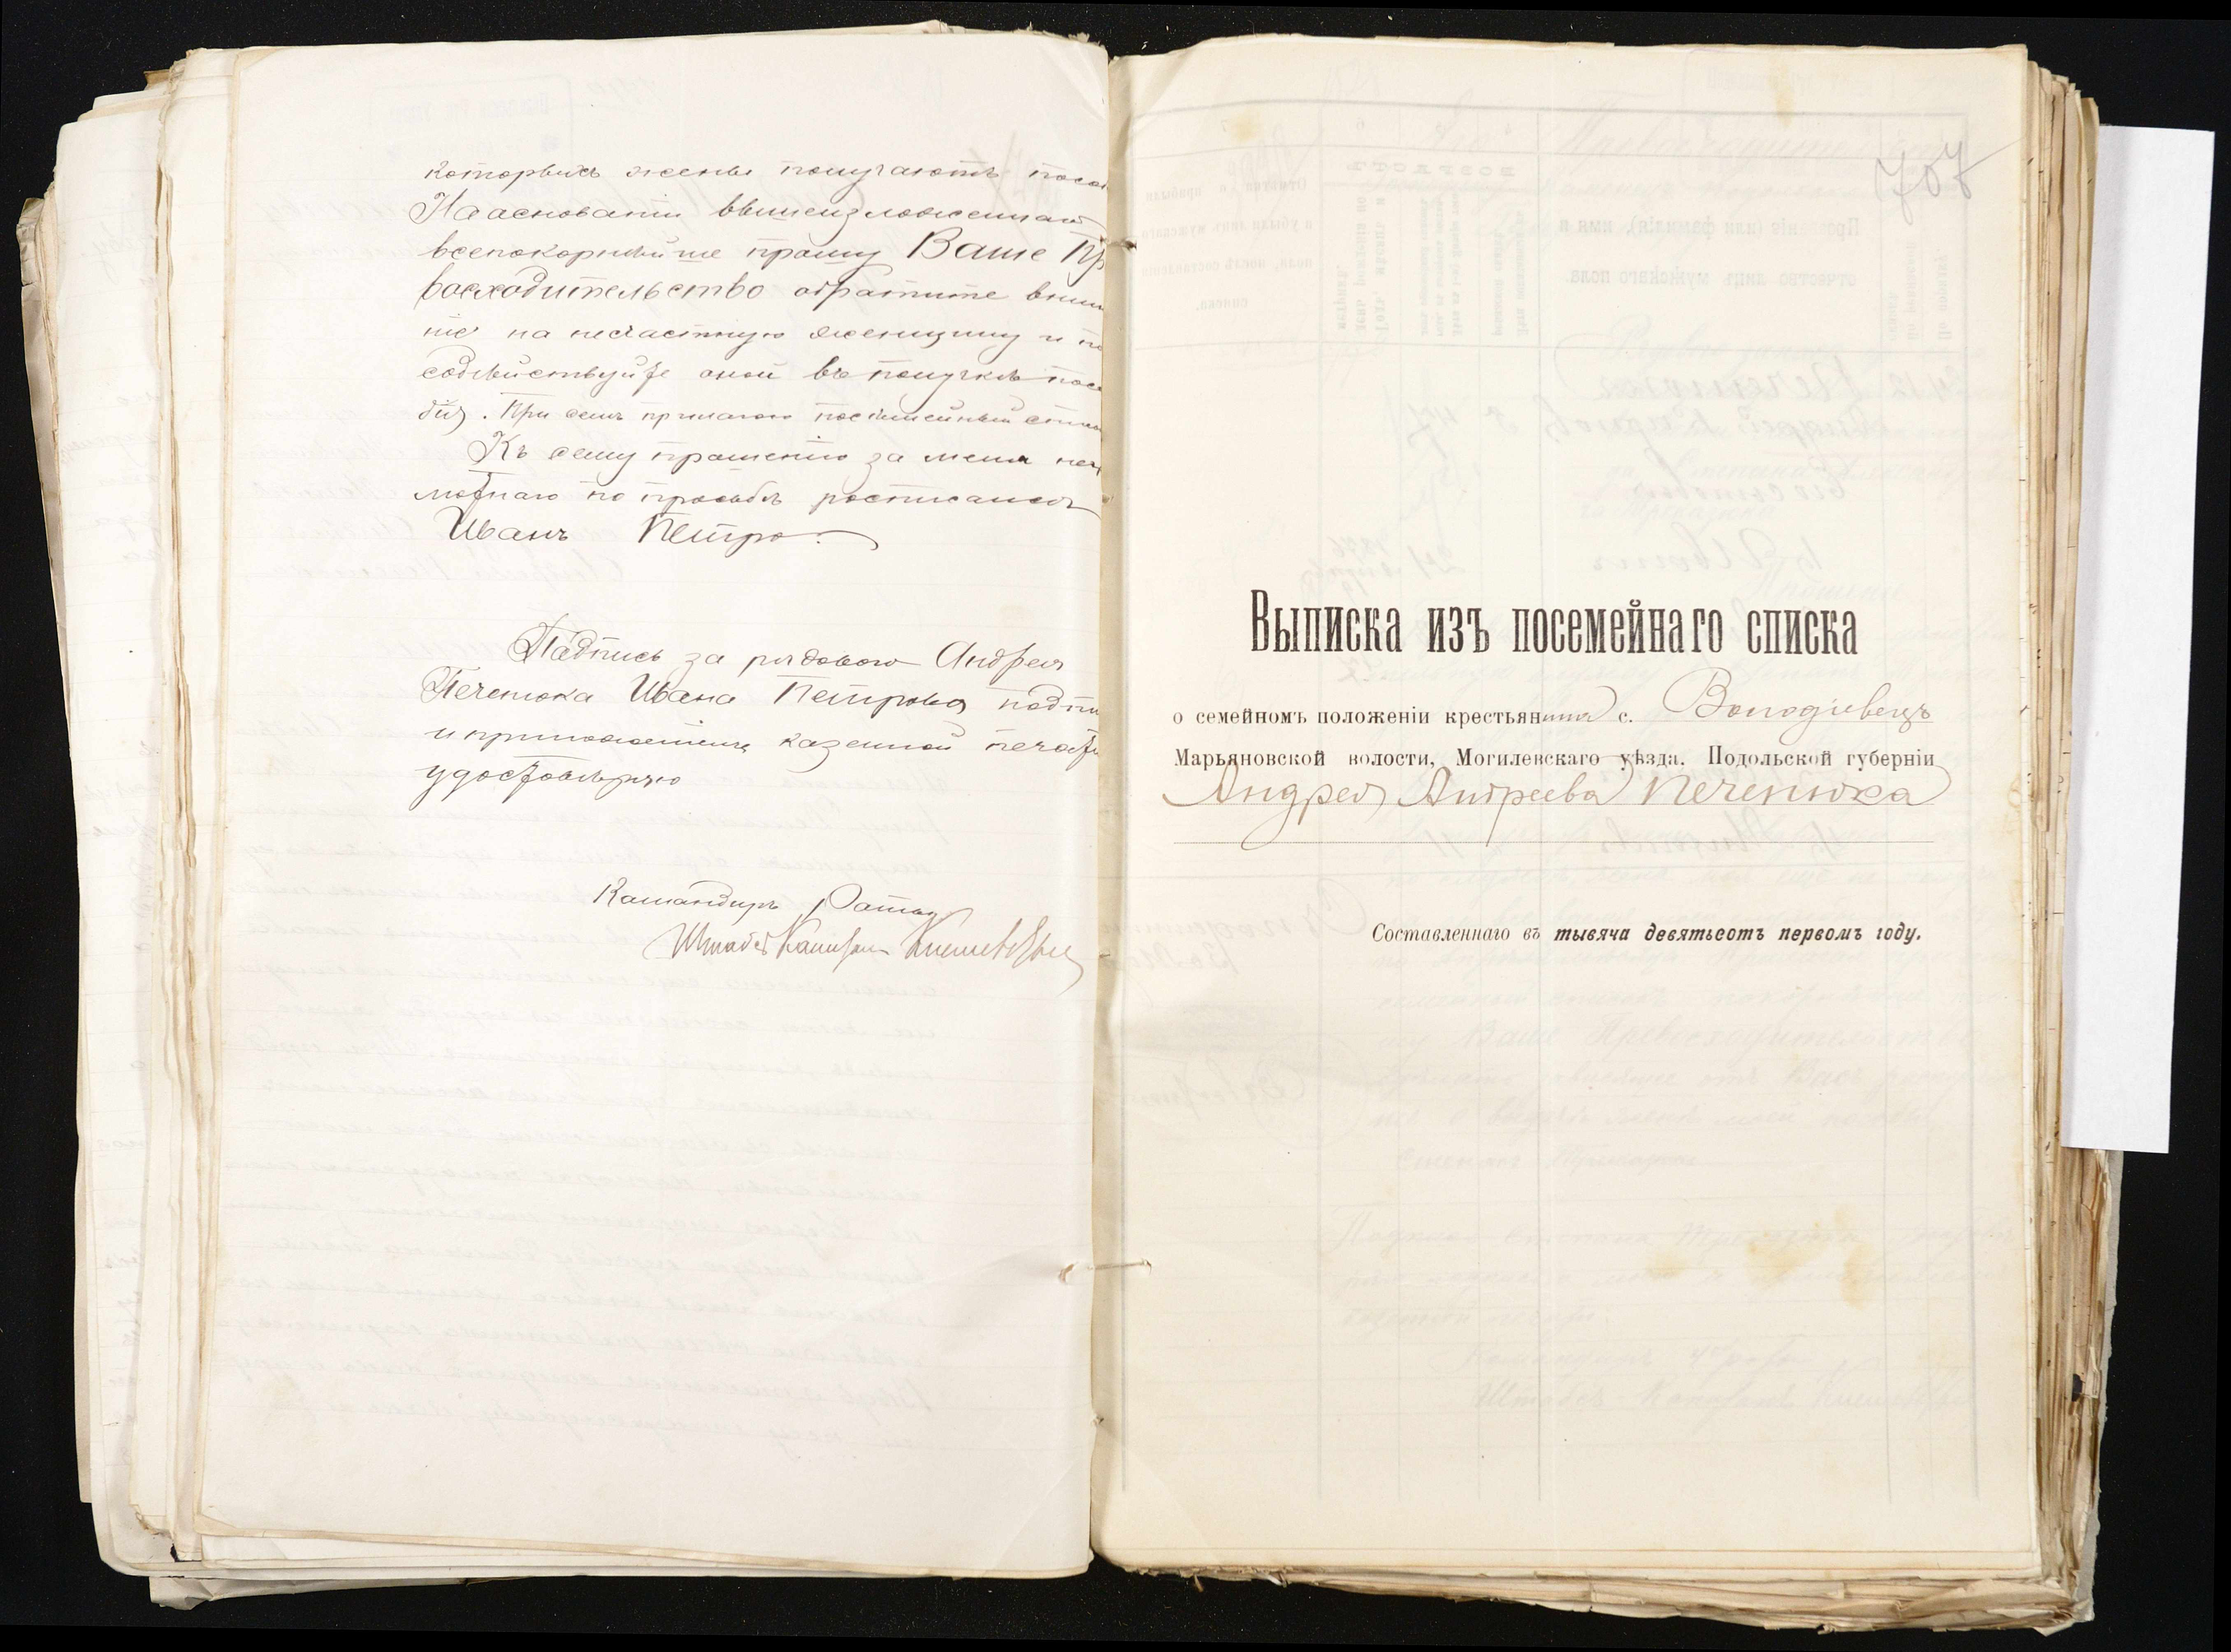 которыхъ жены получаютъ посо
На основаніи вышеизложеннаго
всепокорнѣйше прошу Ваше Пр
восходительство обратите вним
ніе на несчастную женщину и по
содѣйствуйте оной въ получкѣ посо
бія. При семъ прилагаю посѣмейный списо
Къ сему прошенію за меня негр
мотнаго по просьбѣ росписался
Иванъ Петро
Подпись за рядового Андрея
Печенюка Ивана Петрова подпи
и приложеніемъ казенной печати
удостовѣряю
Командиръ Роты
Штабсъ Капитанъ
707
Выписка изъ посемейнаго списка
о семейномъ положеніи крестьянина с. Володіевецъ
Марьяновской волости, Могилевскаго уѣзда. Подольской губерніи
Андрея Андреева Печенюка
Составленнаго въ тысяча девятьсотъ первомъ году.